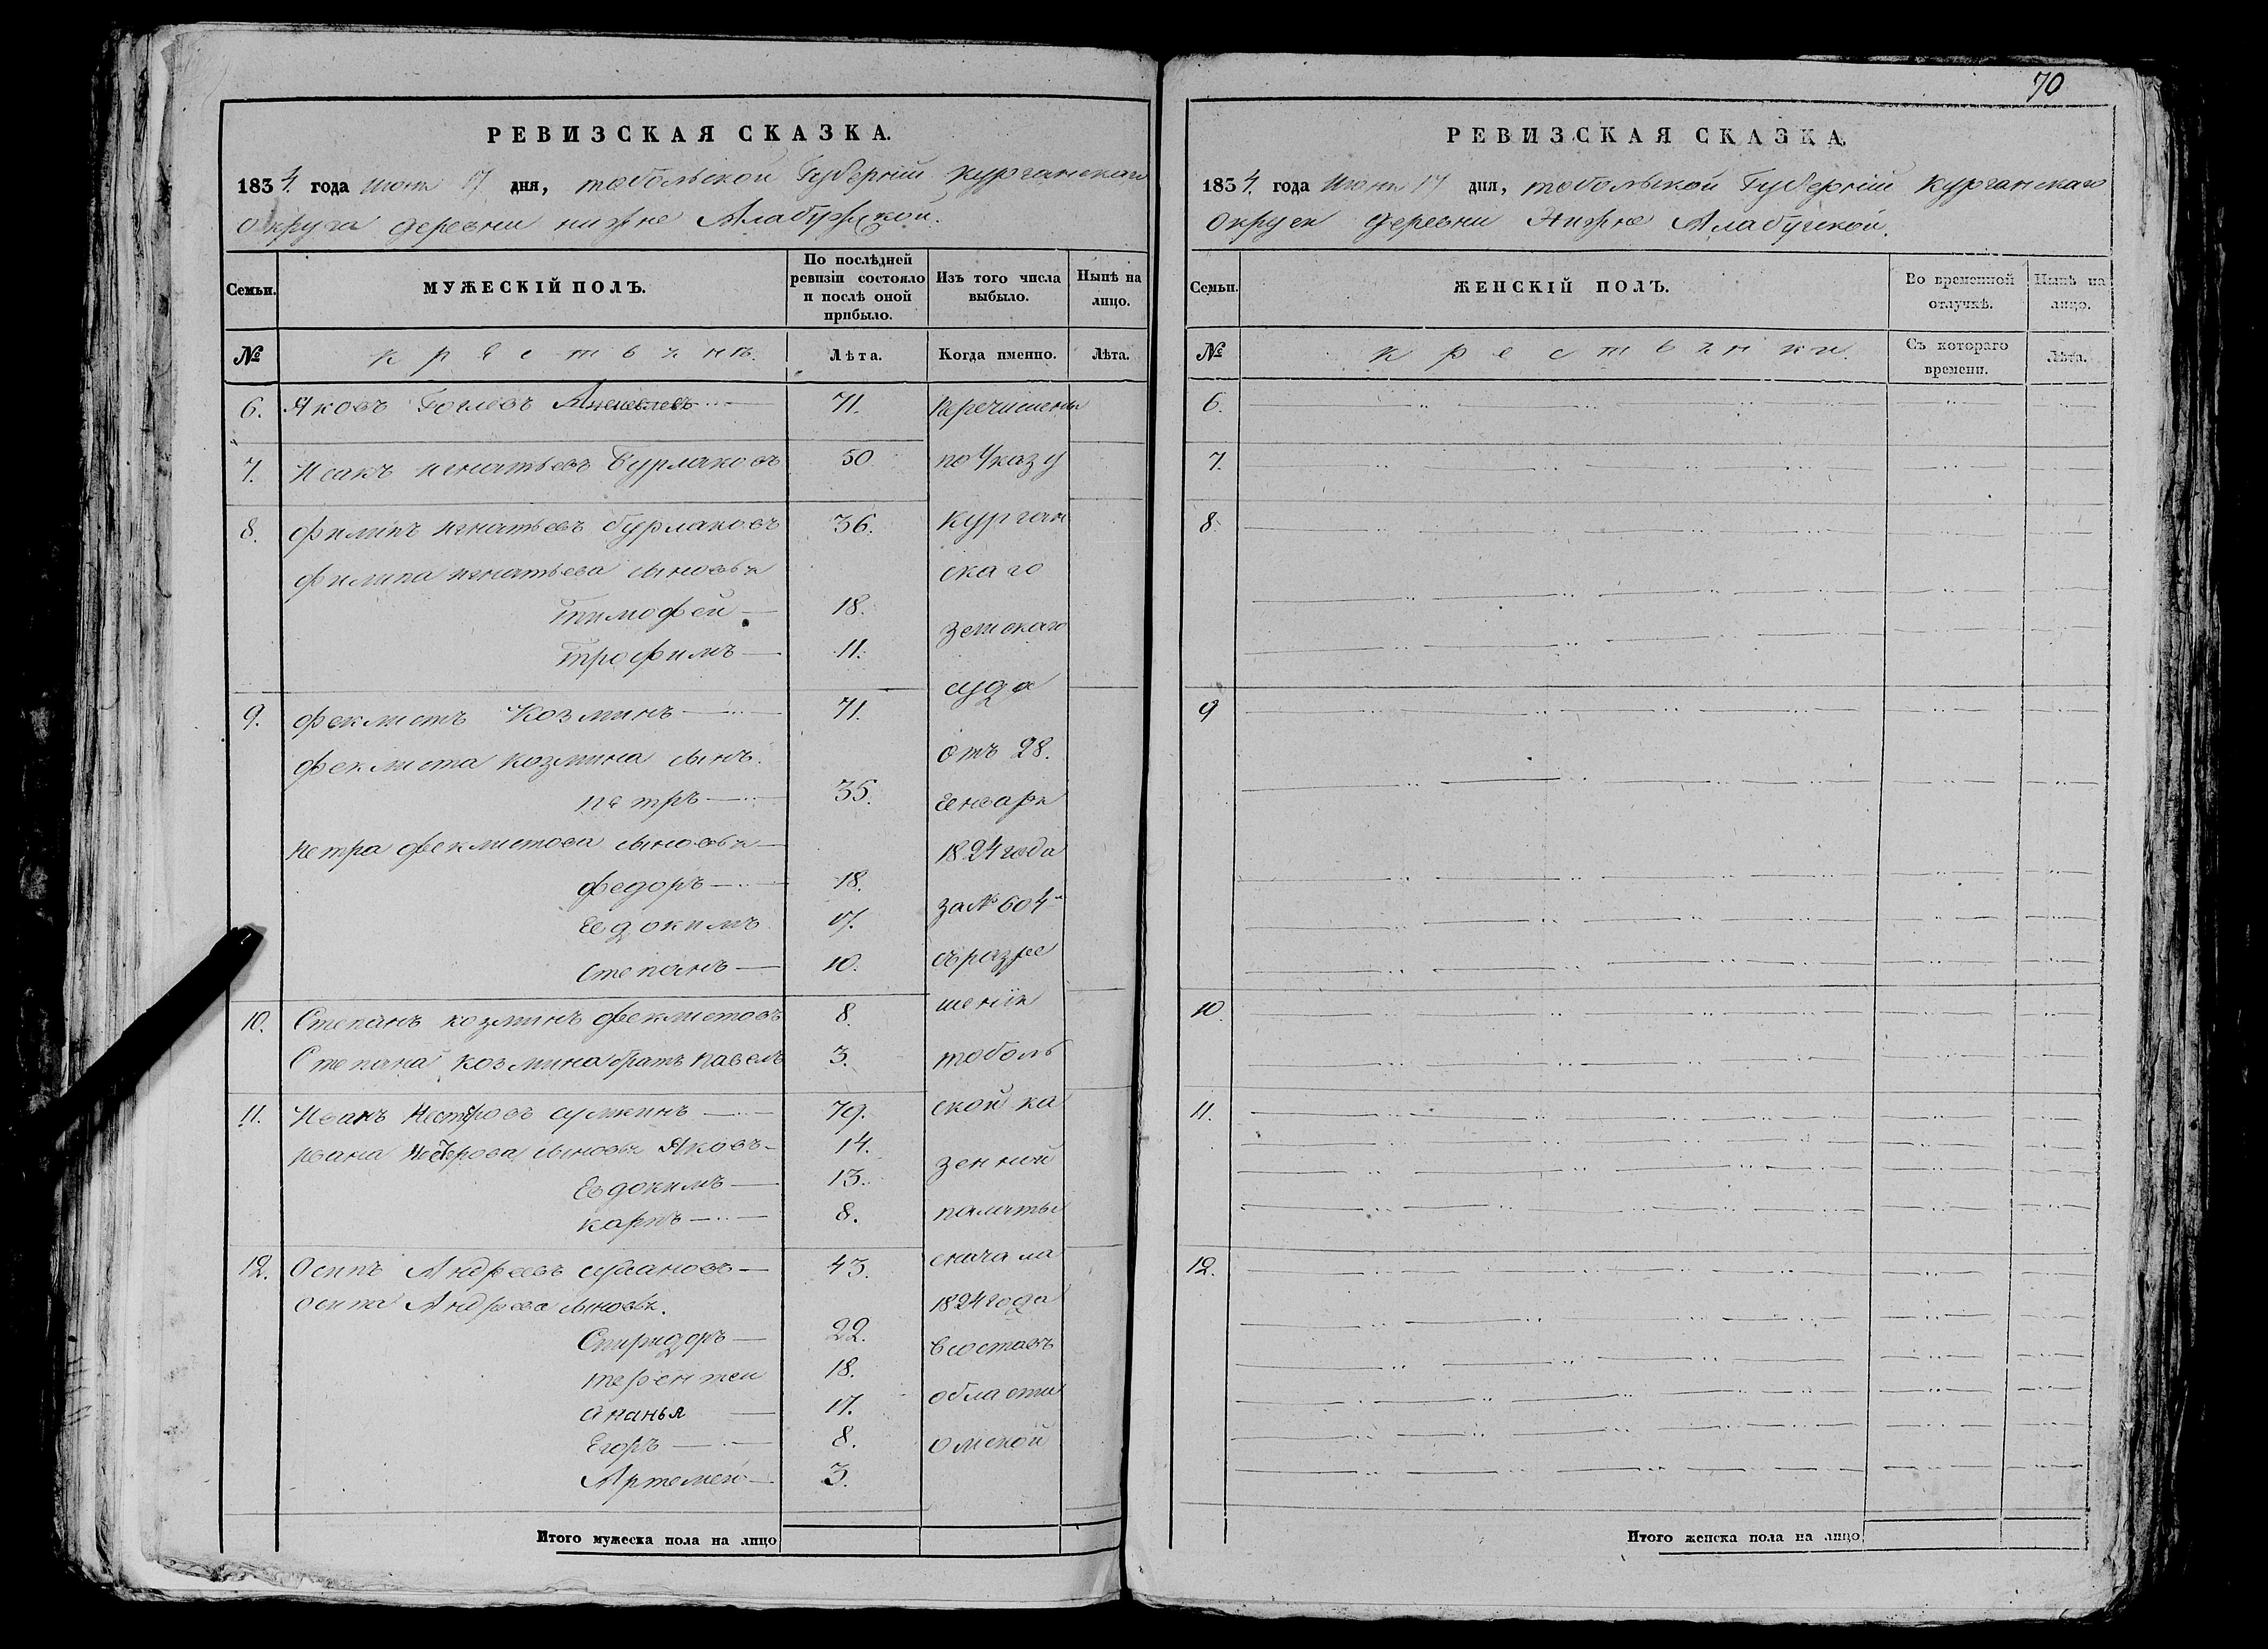 РЕВИЗСКАЯ СКАЗКА.
1834. года июня 17 дня, тобольской Губерніи курганскаго
округа деревни нижне Алабужской.
Семьи.
МУЖЕСКІЙ ПОЛЪ.
По послѣдней ревизіи состояло и послѣ оной прибыло.
Изъ того числа выбыло.
Нынѣ на лицо.
№
крестьянъ.
Лѣта.
Когда именно.
Лѣта.
6. Яковъ 71. перечислены
7. Исакъ игнатьевъ Бурлаковъ 50 по Указу
8. филипъ игнатьевъ бурлаковъ 36. курган
филипа игнатьева сыновья скаго
тимофей 18. земскаго
трофимъ 11.
суда
9. феклистъ Козминъ 71.
феклиста козмина сынъ. отъ 28.
петръ 35. генваря
петра феклистова сыновья 1824 года
федоръ 18.
Евдокимъ 17. за № 604
степанъ 10. съ разре
шенія
10. Степанъ козминъ феклистовъ 8.
Степана козмина братъ павелъ 3. тоболь
11. Иванъ Нестеровъ 79. ской ка
ивана Нестерова сыновья Яковъ 14.
Евдокимъ 13. зенной
карпъ 8. палаты
12. Осипъ Андреевъ 43. сначала
осипа Андреева сыновья. 1824 года
22. въ составъ
терентей 18.
ананья 17. области
Егоръ 8. омской
Артемей 3.
Итого мужеска пола на лицо
70
РЕВИЗСКАЯ СКАЗКА.
1834. года Июня 17 дня, тобольской Губерніи курганскаго
округа деревни Нижне Алабугской.
Семьи.
ЖЕНСКІЙ ПОЛЪ.
Во временной отлучкѣ.
Нынѣ на лицо.
№
крестьянки.
Съ котораго времени.
Лѣта.
6.
7.
8.
9
10.
11.
12.
Итого женска пола на лицо